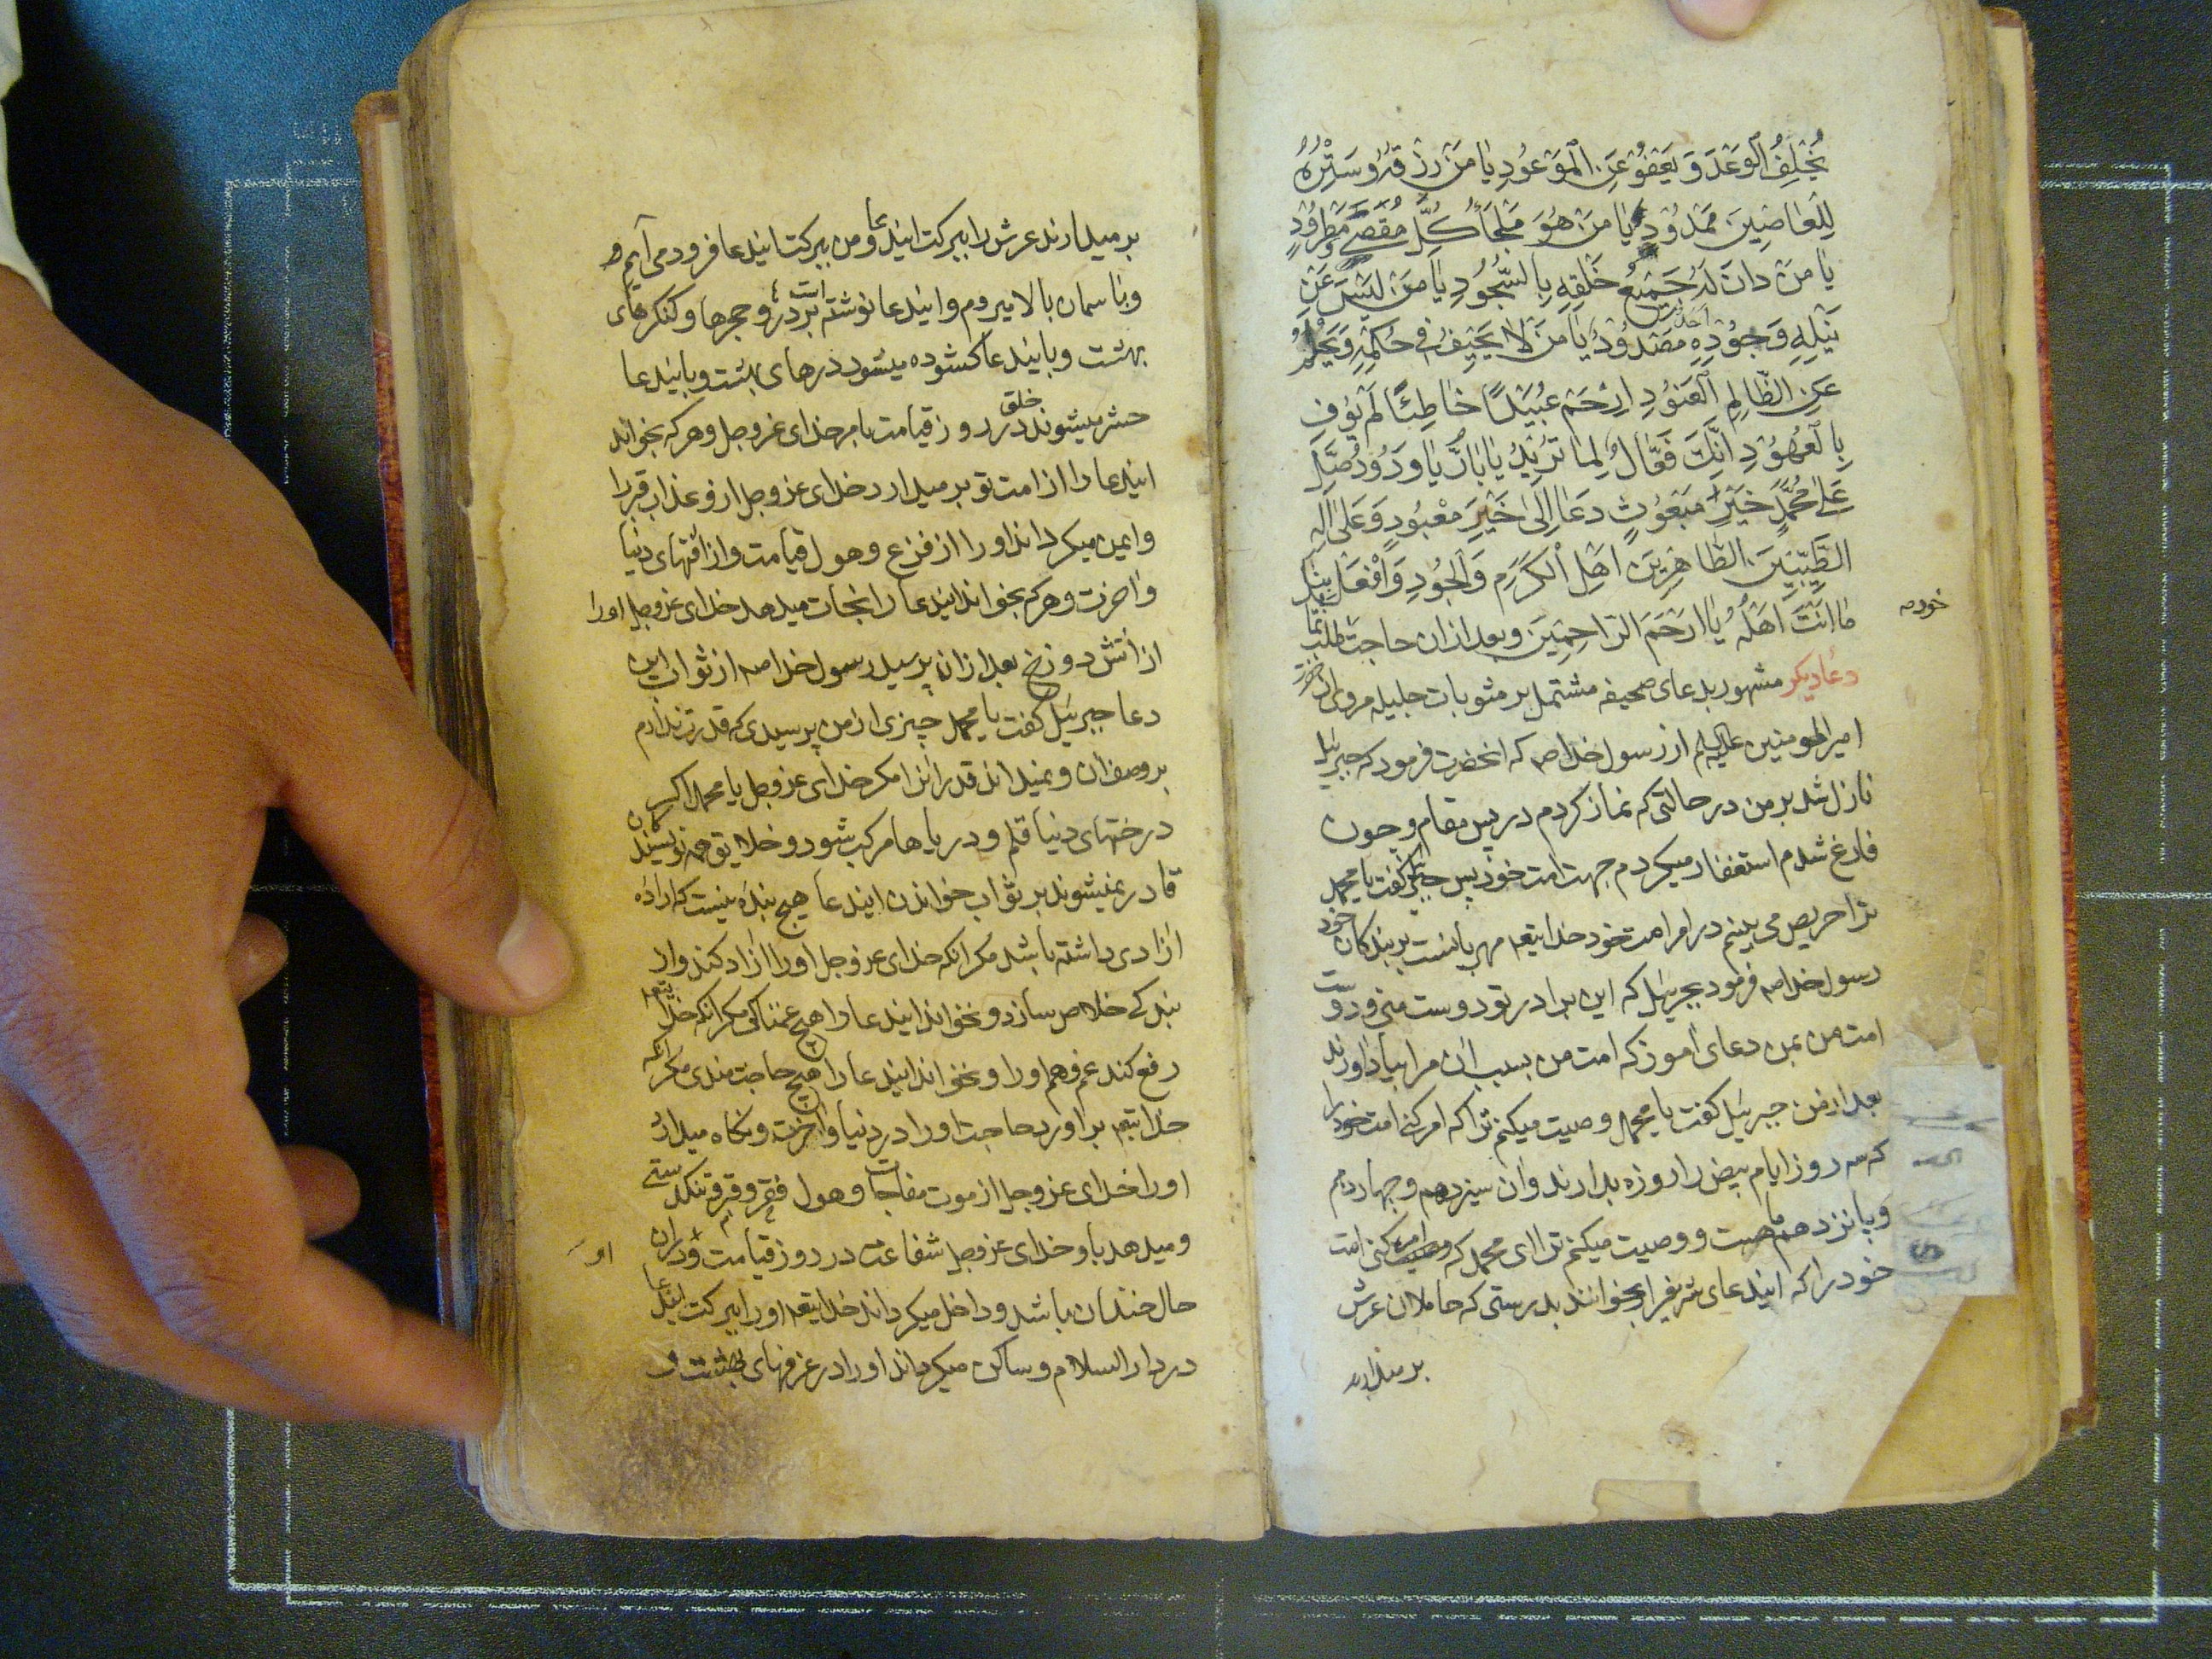 يُخْلِفُ الْوَعْدَ وَ يَعْفُو عَنِ الْمَوْعُودِ يَا مَنْ رِزْقُهُ وَ سِتْرُهُ
لِلْعَاصِينَ مَمْدُودٌ يَا مَنْ هُوَ مَلْجَأُ كُلِّ مُقْصًى مَطْرُودٍ
يَا مَنْ دَانَ لَهُ جَمِيعُ خَلْقِهِ بِالسُّجُودِ يَا مَنْ لَيْسَ عَنْ
نَيْلِهِ وَ جُودِهِ أَحَدٌ مَصْدُودٌ يَا مَنْ لَا يَحِيفُ فِي حُكْمِهِ وَ يَحْلُمُ
عَنِ الظَّالِمِ الْعَنُودِ ارْحَمْ عُبَيْدًا خَاطِئًا لَمْ يُوفِ
بِالْعُهُودِ إِنَّكَ فَعَّالٌ لِمَا تُرِيدُ يَا بَارُّ يَا وَدُودُ صَلِّ
عَلَى مُحَمَّدٍ خَيْرِ مَبْعُوثٍ دَعَا إِلَى خَيْرِ مَعْبُودٍ وَ عَلَى آلِهِ
الطَّيِّبِينَ الطَّاهِرِينَ أَهْلِ الْكَرَمِ وَ الْجُودِ وَ افْعَلْ بِنَا
مَا أَنْتَ أَهْلُهُ يَا أَرْحَمَ الرَّاحِمِينَ وبعد ازان حاجت طلب نما
خود
دعا ديكر مشهور بدعای صحیفه مشتمل بر مثوبات جلیله مروی از حضرت
امیر المومنین علیه السلم از رسول خدا ص که انحضرت فرمود که جبرئیل
نازل شد بر من در حالتی که نماز کردم در پس مقام و چون
فارغ شدم استغفار میکردم جهت امت خود پس جبرئیل کفت یا محمد
ترا حریص می بینم در امر امت خود خدایتعه مهربانست بر بندکان خود
رسول خدا ص فرمود بجبرئیل که این برادر تو دوست منی و دوست
امت من بمن دعای اموز که امت من بسبب ان مرا بیاد اورند
بعد از من جبرئیل کفت یا محمد وصیت میکنم ترا که امر کنی امت خود را
که سه روز ایام بیض را روزه بدارند و ان سیزدهم و چهاردهم
و پانزدهم ماهست و وصیت میکنم ترا ای محمد که امر کنی امت
خود را که ایندعای شریف را بخوانند بدرستی که حاملان عرش
بر میدارند
بر میدارند عرش را ببرکت ایندعا و من ببرکت ایندعا فرود می آیم
و باسمان بالا میروم و ایندعا نوشته است بر درها و حجرها و کنکرهای
بهشت و باىندعا کشوده میشود درهای بهشت و بایندعا
حشر میشوند خلق در روز قیامت بامر خدای عزوجل و هر که بخواند
ایندعا را از امت تو بر میدارد خدای عزوجل ازو عذاب قبر را
و ایمن میکرداند او را از فزع و هول قیامت و از افتهای دنیا
و اخرت و هر که بخواند ایندعا را نجات میدهد خدای عزوجل او را
از اتش دوزخ بعد ازان پرسید رسول خدا ص از ثواب این
دعا جبرئیل کفت یا محمد چیزی از من پرسیدی که قدرت ندارم
بر وصف ان و نمیداند قدر انرا مکر خدای عزوجل یا محمد اکر
درختهای دنیا قلم و دریاها مرکب شود و خلایق همه نویسند
قادر نمیشوند بر ثواب خواندن ایندعا هیچ بنده نیست که اراده
ازادی داشته باشد مکر انکه خدای عزوجل او را ازاد کند و از
بندکی خلاص سازد و نخواند ایندعا را هیچ غمناکی مکر انکه خدایتعه
رفع کند غم و هم او را و نخواند ایندعا را هیچ حاجتمندی مکر انکه
خدایتعه بر اورد حاجت او را در دنیا و اخرت و نکاه میدارد
او را خدای عزوجل از موت مفاجات و هول قبر و فقر و تنکدستی
و میدهد باو خدای عزوجل شفاعت در روز قیامت و دران
حال خندان باشد و داخل میکرداند خدایتعه او را ببرکت ایندعا
در دار السلام و ساکن میکرداند او را در غرفهای بهشت و